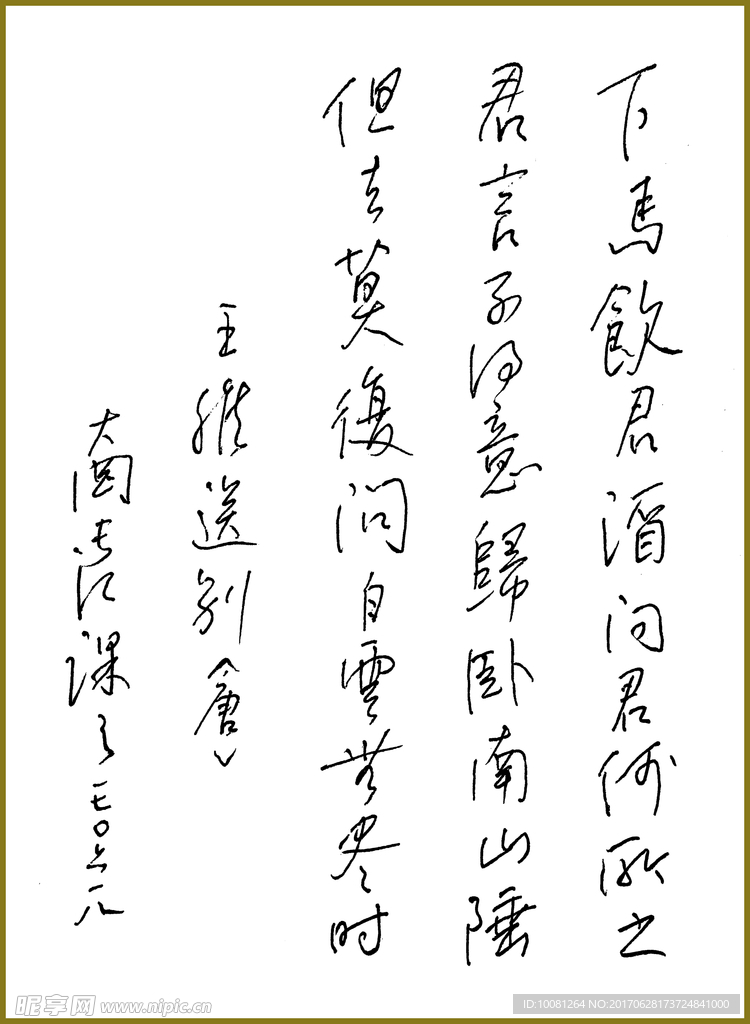 下馬飲君酒问君何所之
君言不得意歸卧南山陲
但去莫復问白雲無盡时
王維送别〈唐〉
课之一七〇六
昵享网 www.nipic.cn
ID:10081264 NO:20170628173724841000